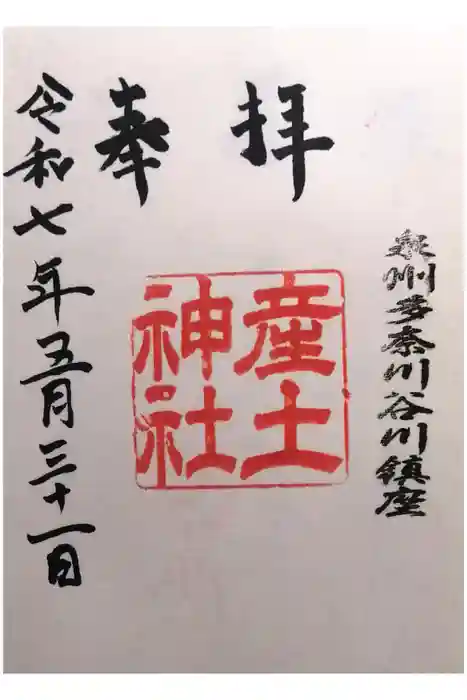 奉拝
泉州多奈川谷川鎮座
産土
神社
令和七年五月三十一日